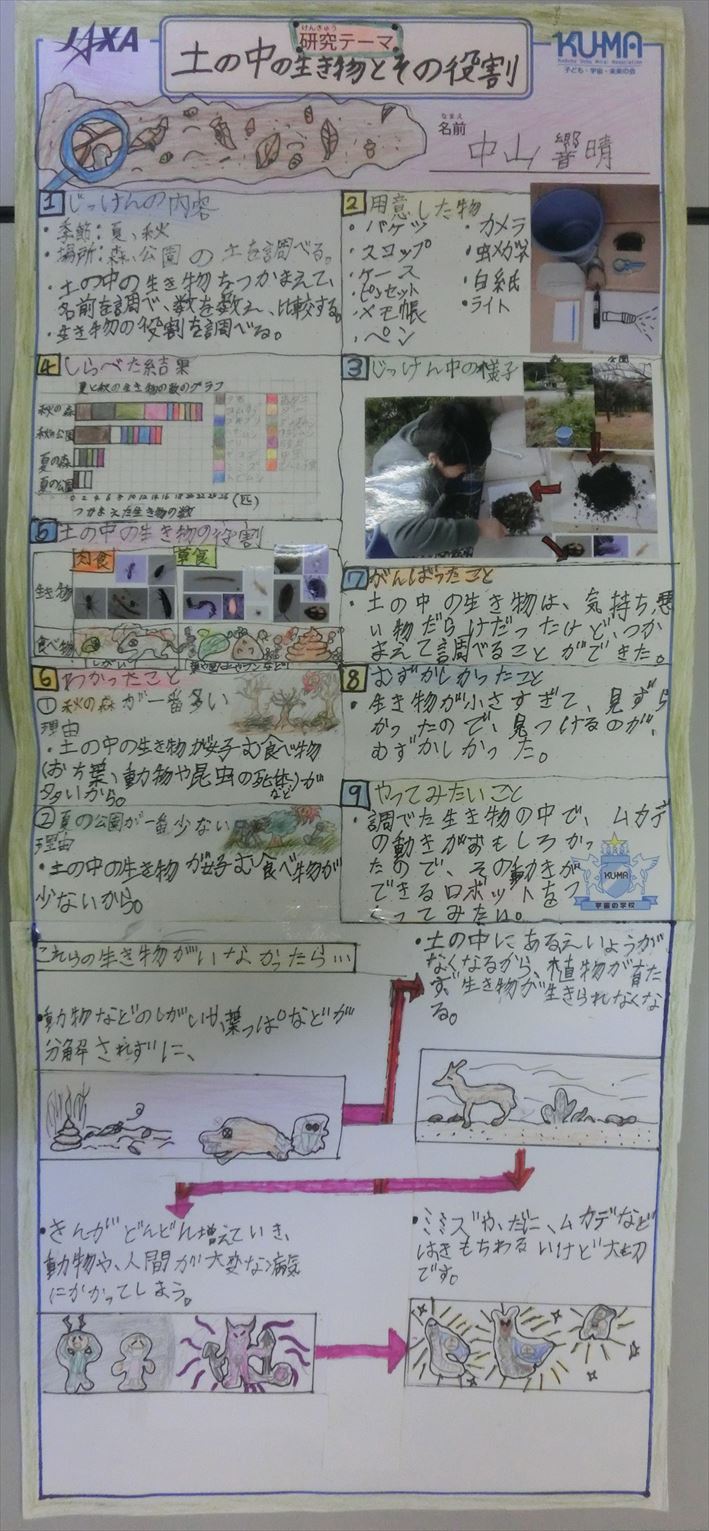 JAXA
けんきゅう
研究テーマ
土の中の生き物とその役割
KU-MA
子ども・宇宙・未来の会
なまえ
名前
中山響晴
1 じっけんの内容
・季節：夏、秋
・場所：森、公園の土を調べる。
・土の中の生き物をつかまえて、
名前を調べ、数を数え、比較する。
・生き物の役割を調べる。
2 用意した物
・バケツ
・スコップ
・ケース
・ピンセット
・メモ帳
・ペン
・カメラ
・虫メガネ
・白紙
・ライト
3 じっけん中の様子
公園
4 しらべた結果
夏と秋の生き物の数のグラフ
秋の森
秋の公園
夏の森
夏の公園
(匹)
つかまえた生き物の数
5 土の中の生き物の役割
肉食
草食
生き物
食べ物
しがい
6 わかったこと
① 秋の森が一番多い
理由
・土の中の生き物が好む食べ物
(おち葉、動物や昆虫の死体)が
など
多いから。
② 夏の公園が一番少ない
理由
・土の中の生き物が好む食べ物が
少ないから。
7 がんばったこと
・土の中の生き物は、気持ち悪
い物だらけだったけど、つか
まえて調べることができた。
8 むずかしかったこと
・生き物が小さすぎて、見ずら
かったので、見つけるのが、
むずかしかった。
9 やってみたいこと
・調でた生き物の中で、ムカデ
の動きがおもしろかっ
たので、その動きが
できるロボットをつ
くってみたい。
KU-MA
宇宙の学校
これらの生き物がいなかったら…
・動物などのしがいや、葉っぱなどが
分解されずに、
・土の中にあるえいようが
なくなるから、植物が育た
ず生き物が生きられなくな
る。
・きんがどんどん増えていき、
動物や、人間が大変な病気
にかかってしまう。
・ミミズや、だに、ムカデなど
はきもちわるいけど大切
です。